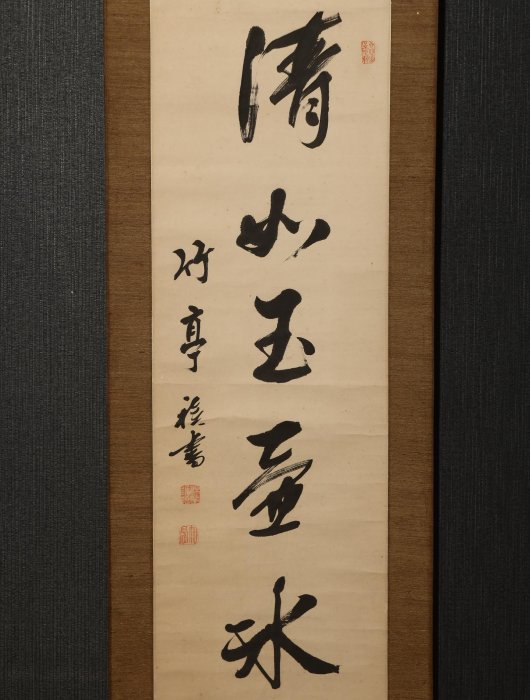 清如玉壺氷
竹亭禎書